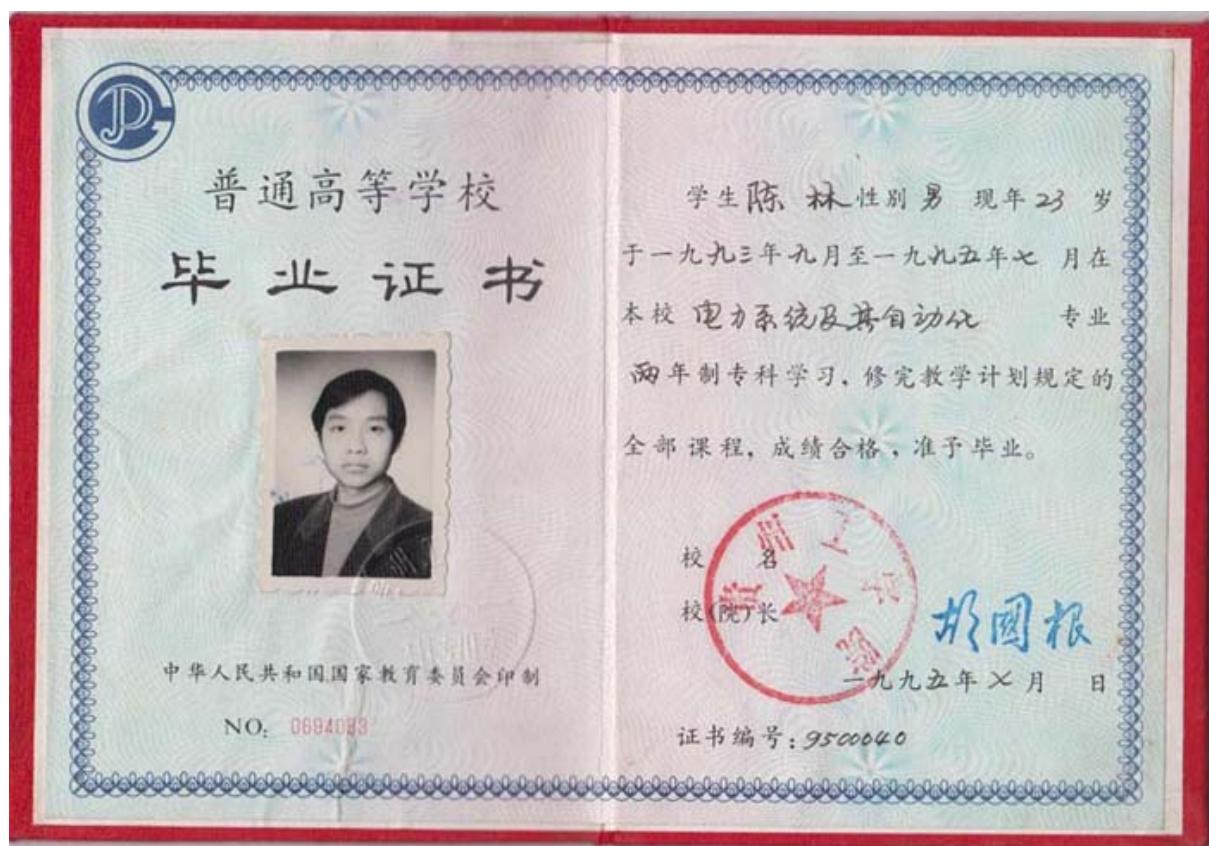 普通高等学校
毕业证书
中华人民共和国国家教育委员会印制
NO: 0694083
学生陈林性别男 现年23岁
于一九九三年九月至一九九五年七月在
本校 电力系统及其自动化 专业
两年制专科学习，修完教学计划规定的
全部课程，成绩合格，准予毕业。
校名
贵州工学院
校(院)长 胡国根
一九九五年七月 日
证书编号：9500040